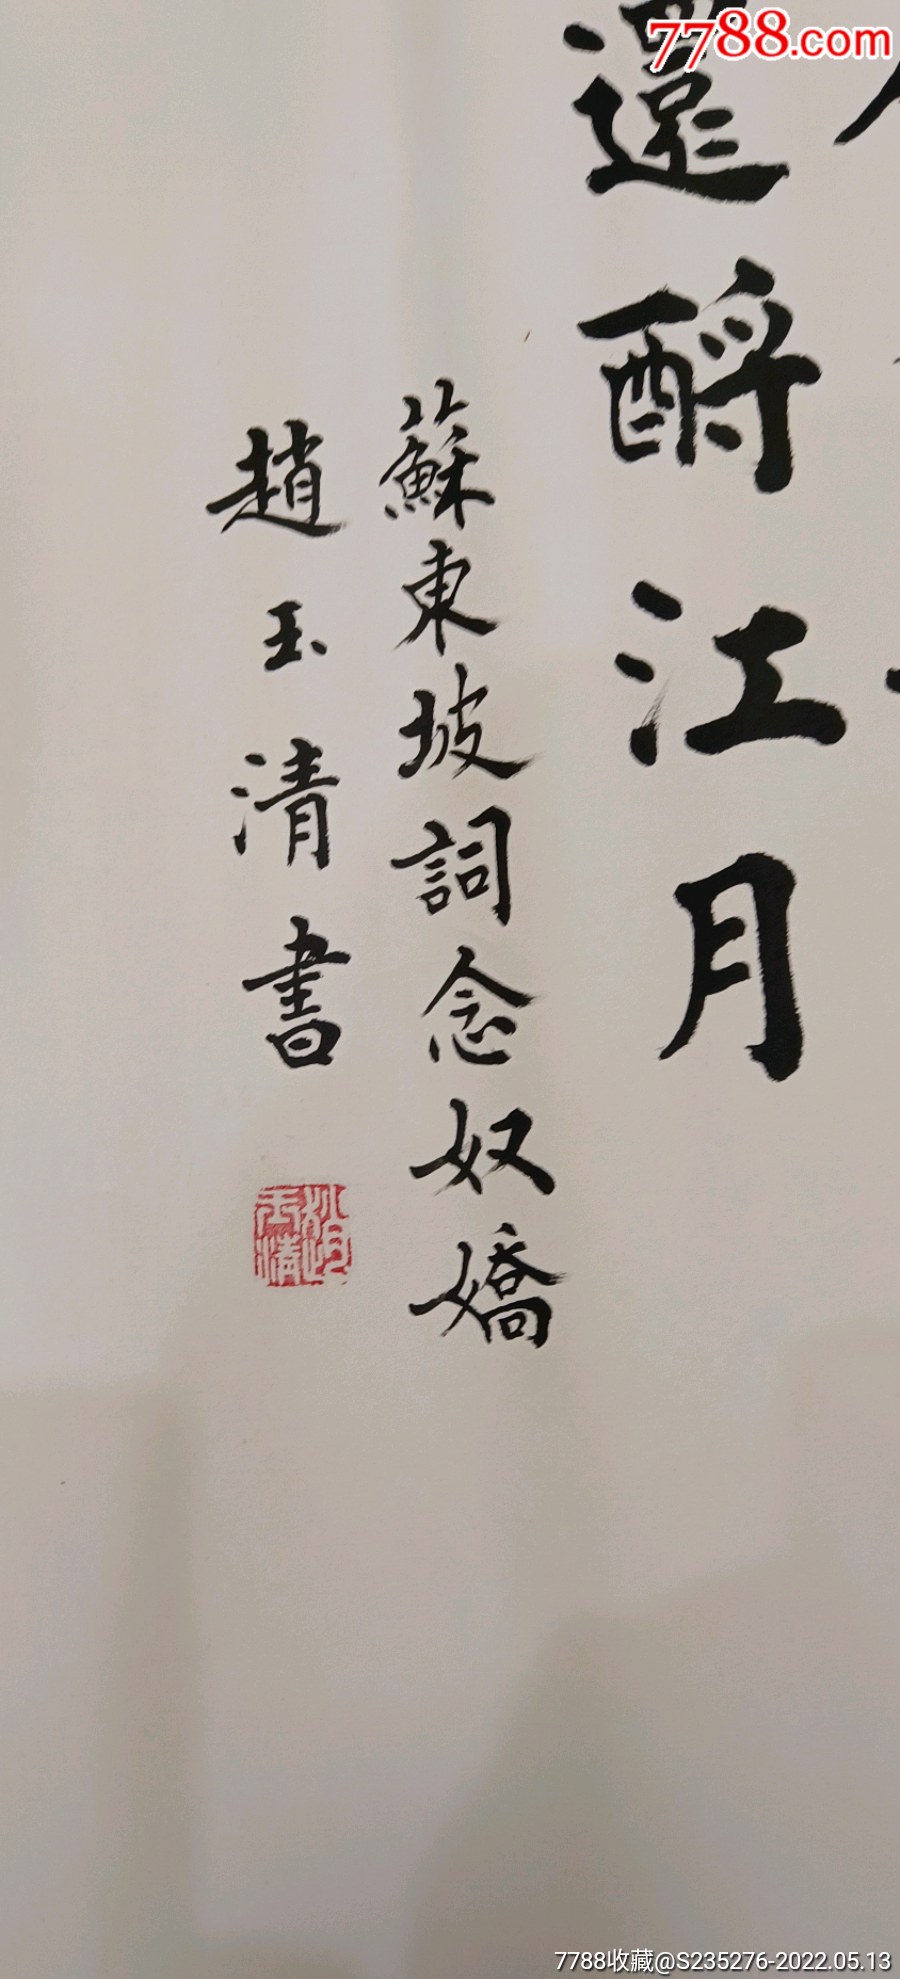 7788.com
還酹江月
蘇東坡詞念奴嬌
趙玉清書
趙玉清
7788收藏@S235276-2022.05.13